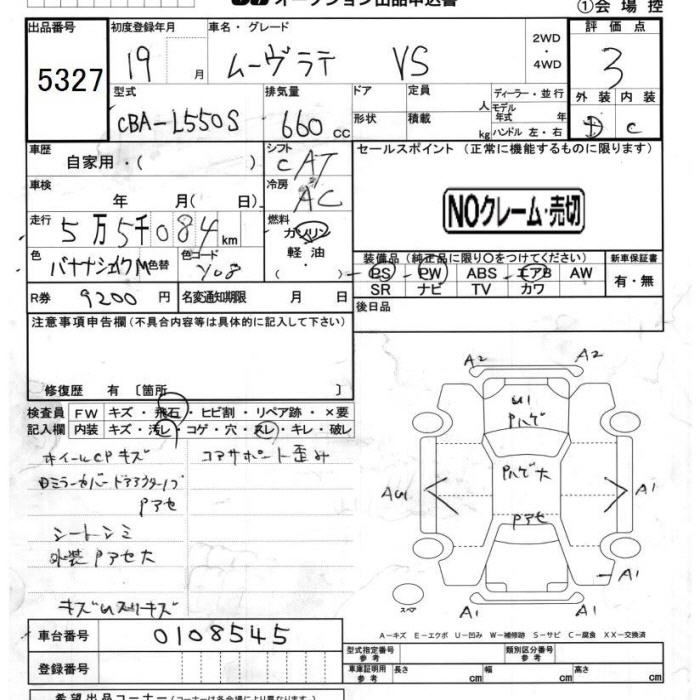 ①会場控
出品番号 初度登録年月 車名・グレード 2WD 評価点
5327 19 月 ムーヴラテ VS ・4WD 3
型式 排気量 ドア 定員 人 ディーラー・並行 外装 内装
CBA-L550S 660 cc 形状 積載 kg モデル年式 年式 ハンドル 左・右 D C
車歴 シフト セールスポイント (正常に機能するものに限ります)
自家用・( ) CAT
車検 冷房
年 月( 日) AC NOクレーム・売切
走行 燃料
5万5千084km ガソリン
色 色コード 軽油 装備品 (純正品に限り○をつけてください) 新車保証書
バナナシェイクM 色替 Y08 ( ) PS PW ABS エアB AW 有・無
SR ナビ TV カワ
R券 9200円 名変通知期限 月 日 後日品
注意事項申告欄(不具合内容等は具体的に記入して下さい)
修復歴 有 〔箇所 〕
検査員 FW キズ・飛石・ヒビ割・リペア跡・×要
記入欄 内装 キズ・汚レ・コゲ・穴・スレ・キレ・破レ
ホイールCPキズ コアサポート歪み
Pアセ
シートシミ
外装Pアセ大
A2 A2
U1
Pハゲ
Pハゲ大
A1
Pアセ
A1
スペア A1 A1
A－キズ E－エクボ U－凹み W－補修跡 S－サビ C－腐食 XX－交換済
車台番号 0108545 型式指定番号 参考 類別区分番号 参考
登録番号 車庫証明用 参考 長さ cm 幅 cm 高さ cm
希望出品コーナー